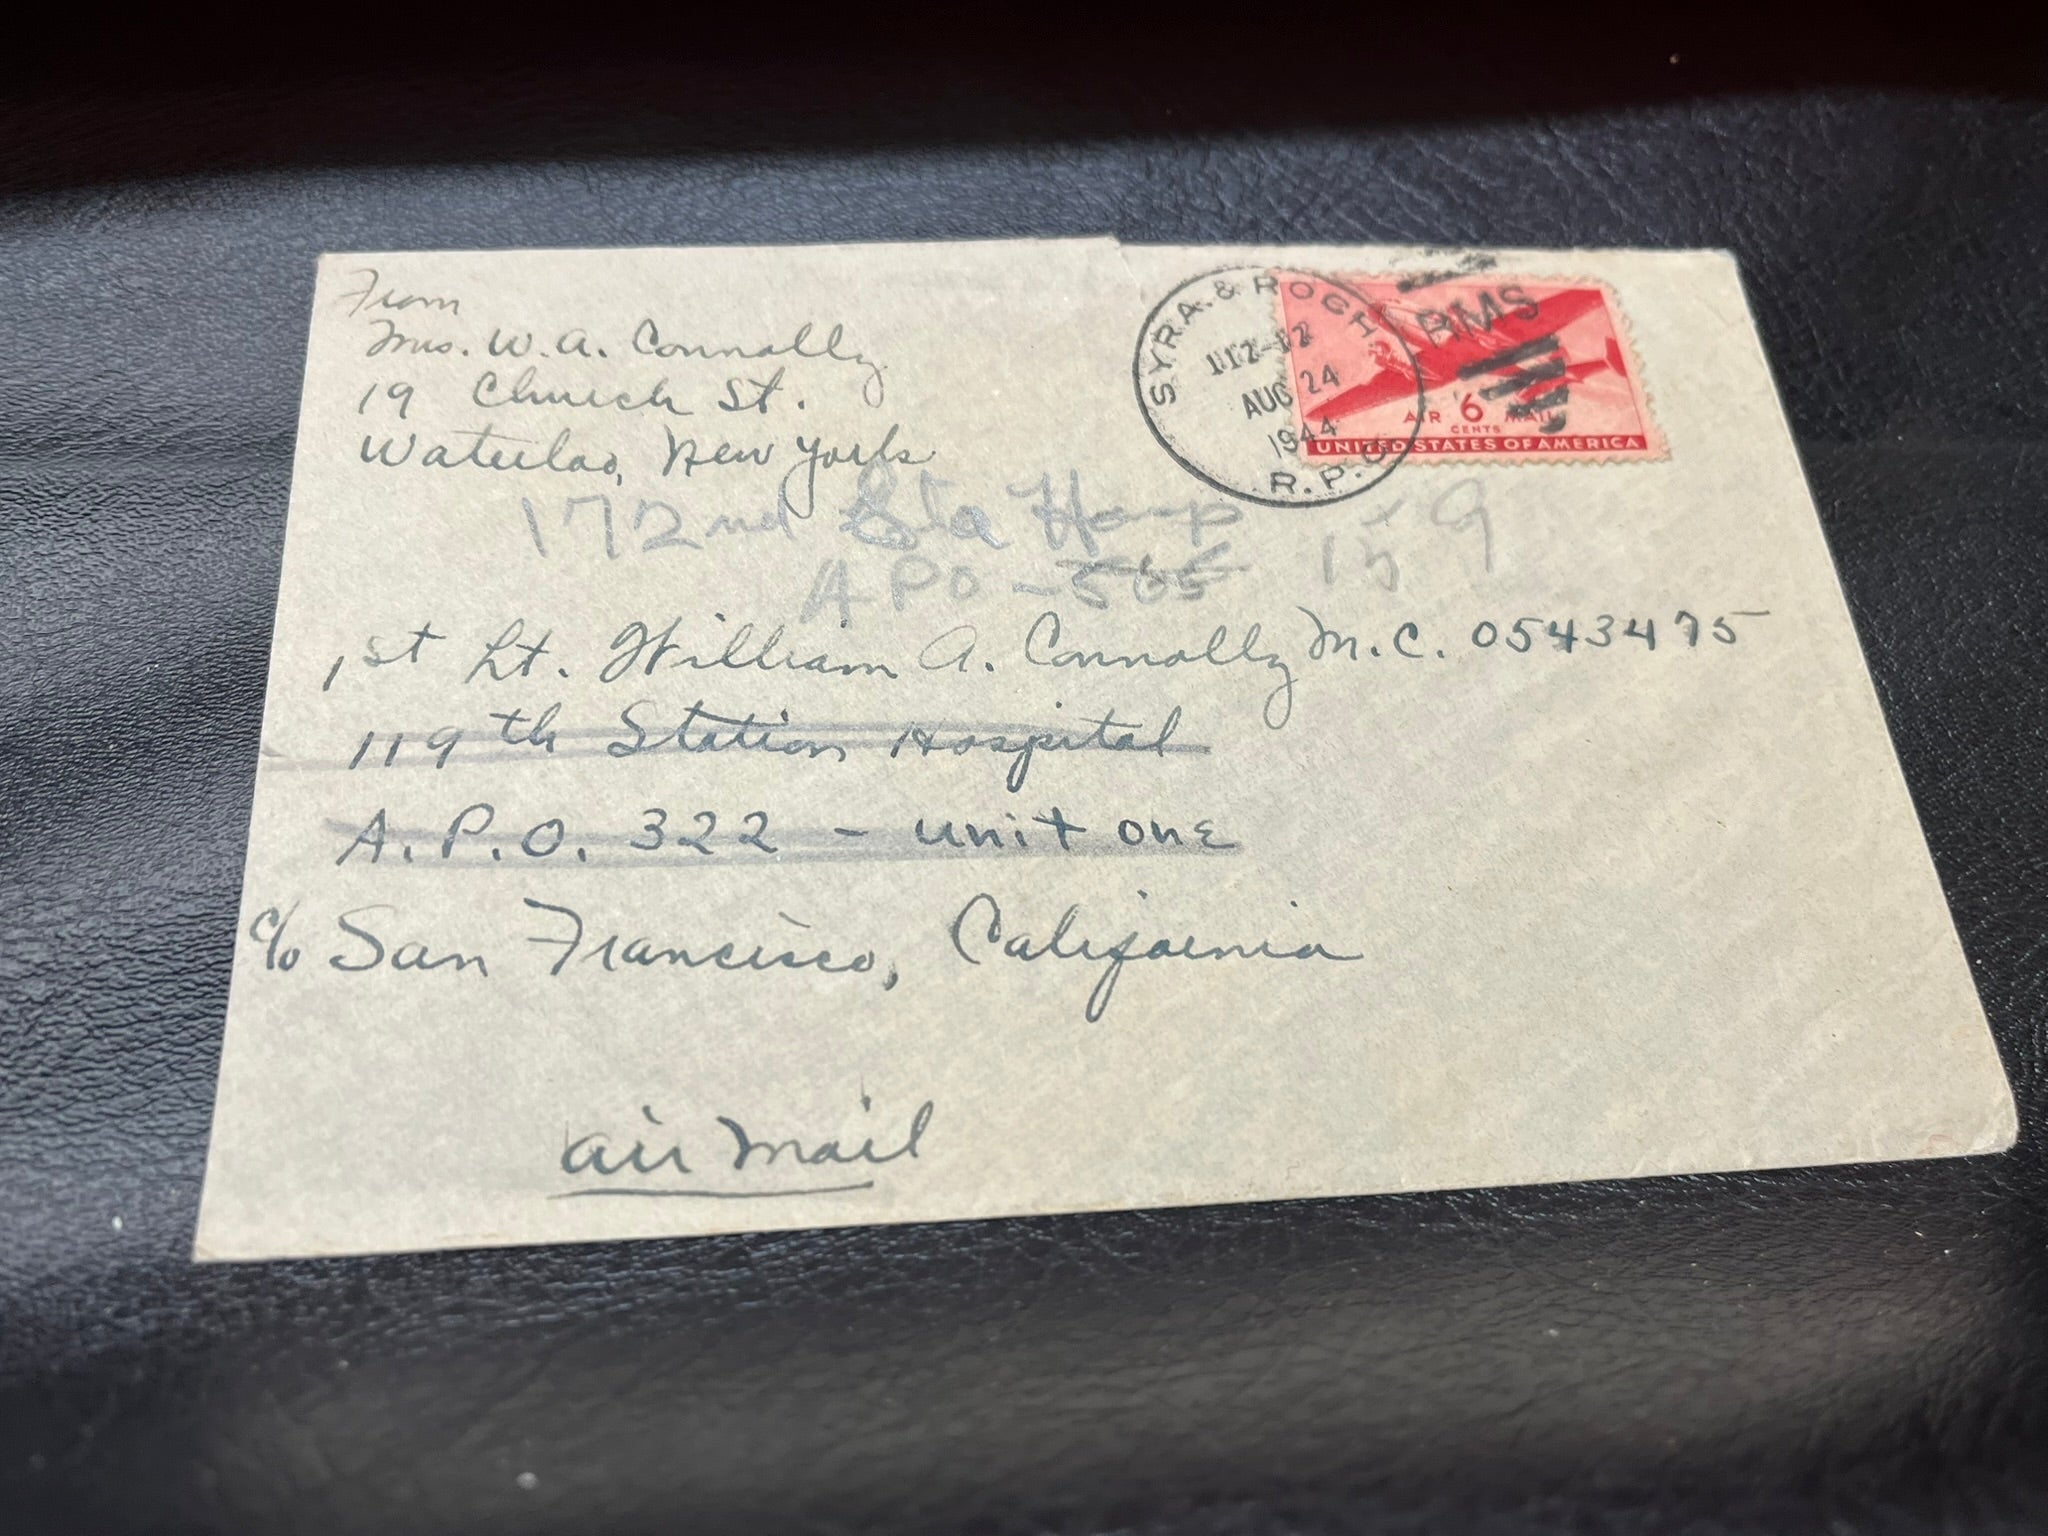 From
Mrs. W. A. Connolly
19 Church St.
Waterloo, New York
SYRA. & ROCH
AUG 24
1944
R.P.O.
RMS
AIR 6 MAIL
CENTS
UNITED STATES OF AMERICA
172nd Sta Hosp
APO - 565
1st Lt. William A. Connolly M.C. 0543475
119th Station Hospital
A.P.O. 322 - unit one
c/o San Francisco, California
air mail